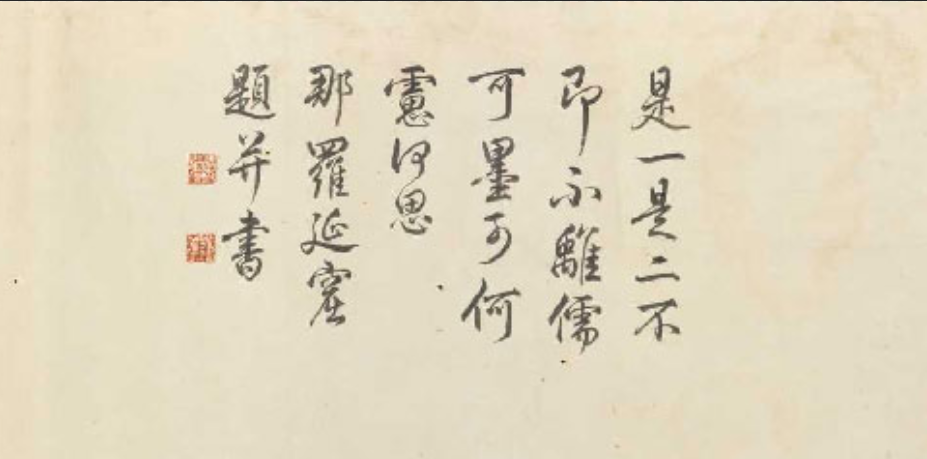 是一是二不
即不離儒
可墨可何
慮何思
那羅延窟
題並書